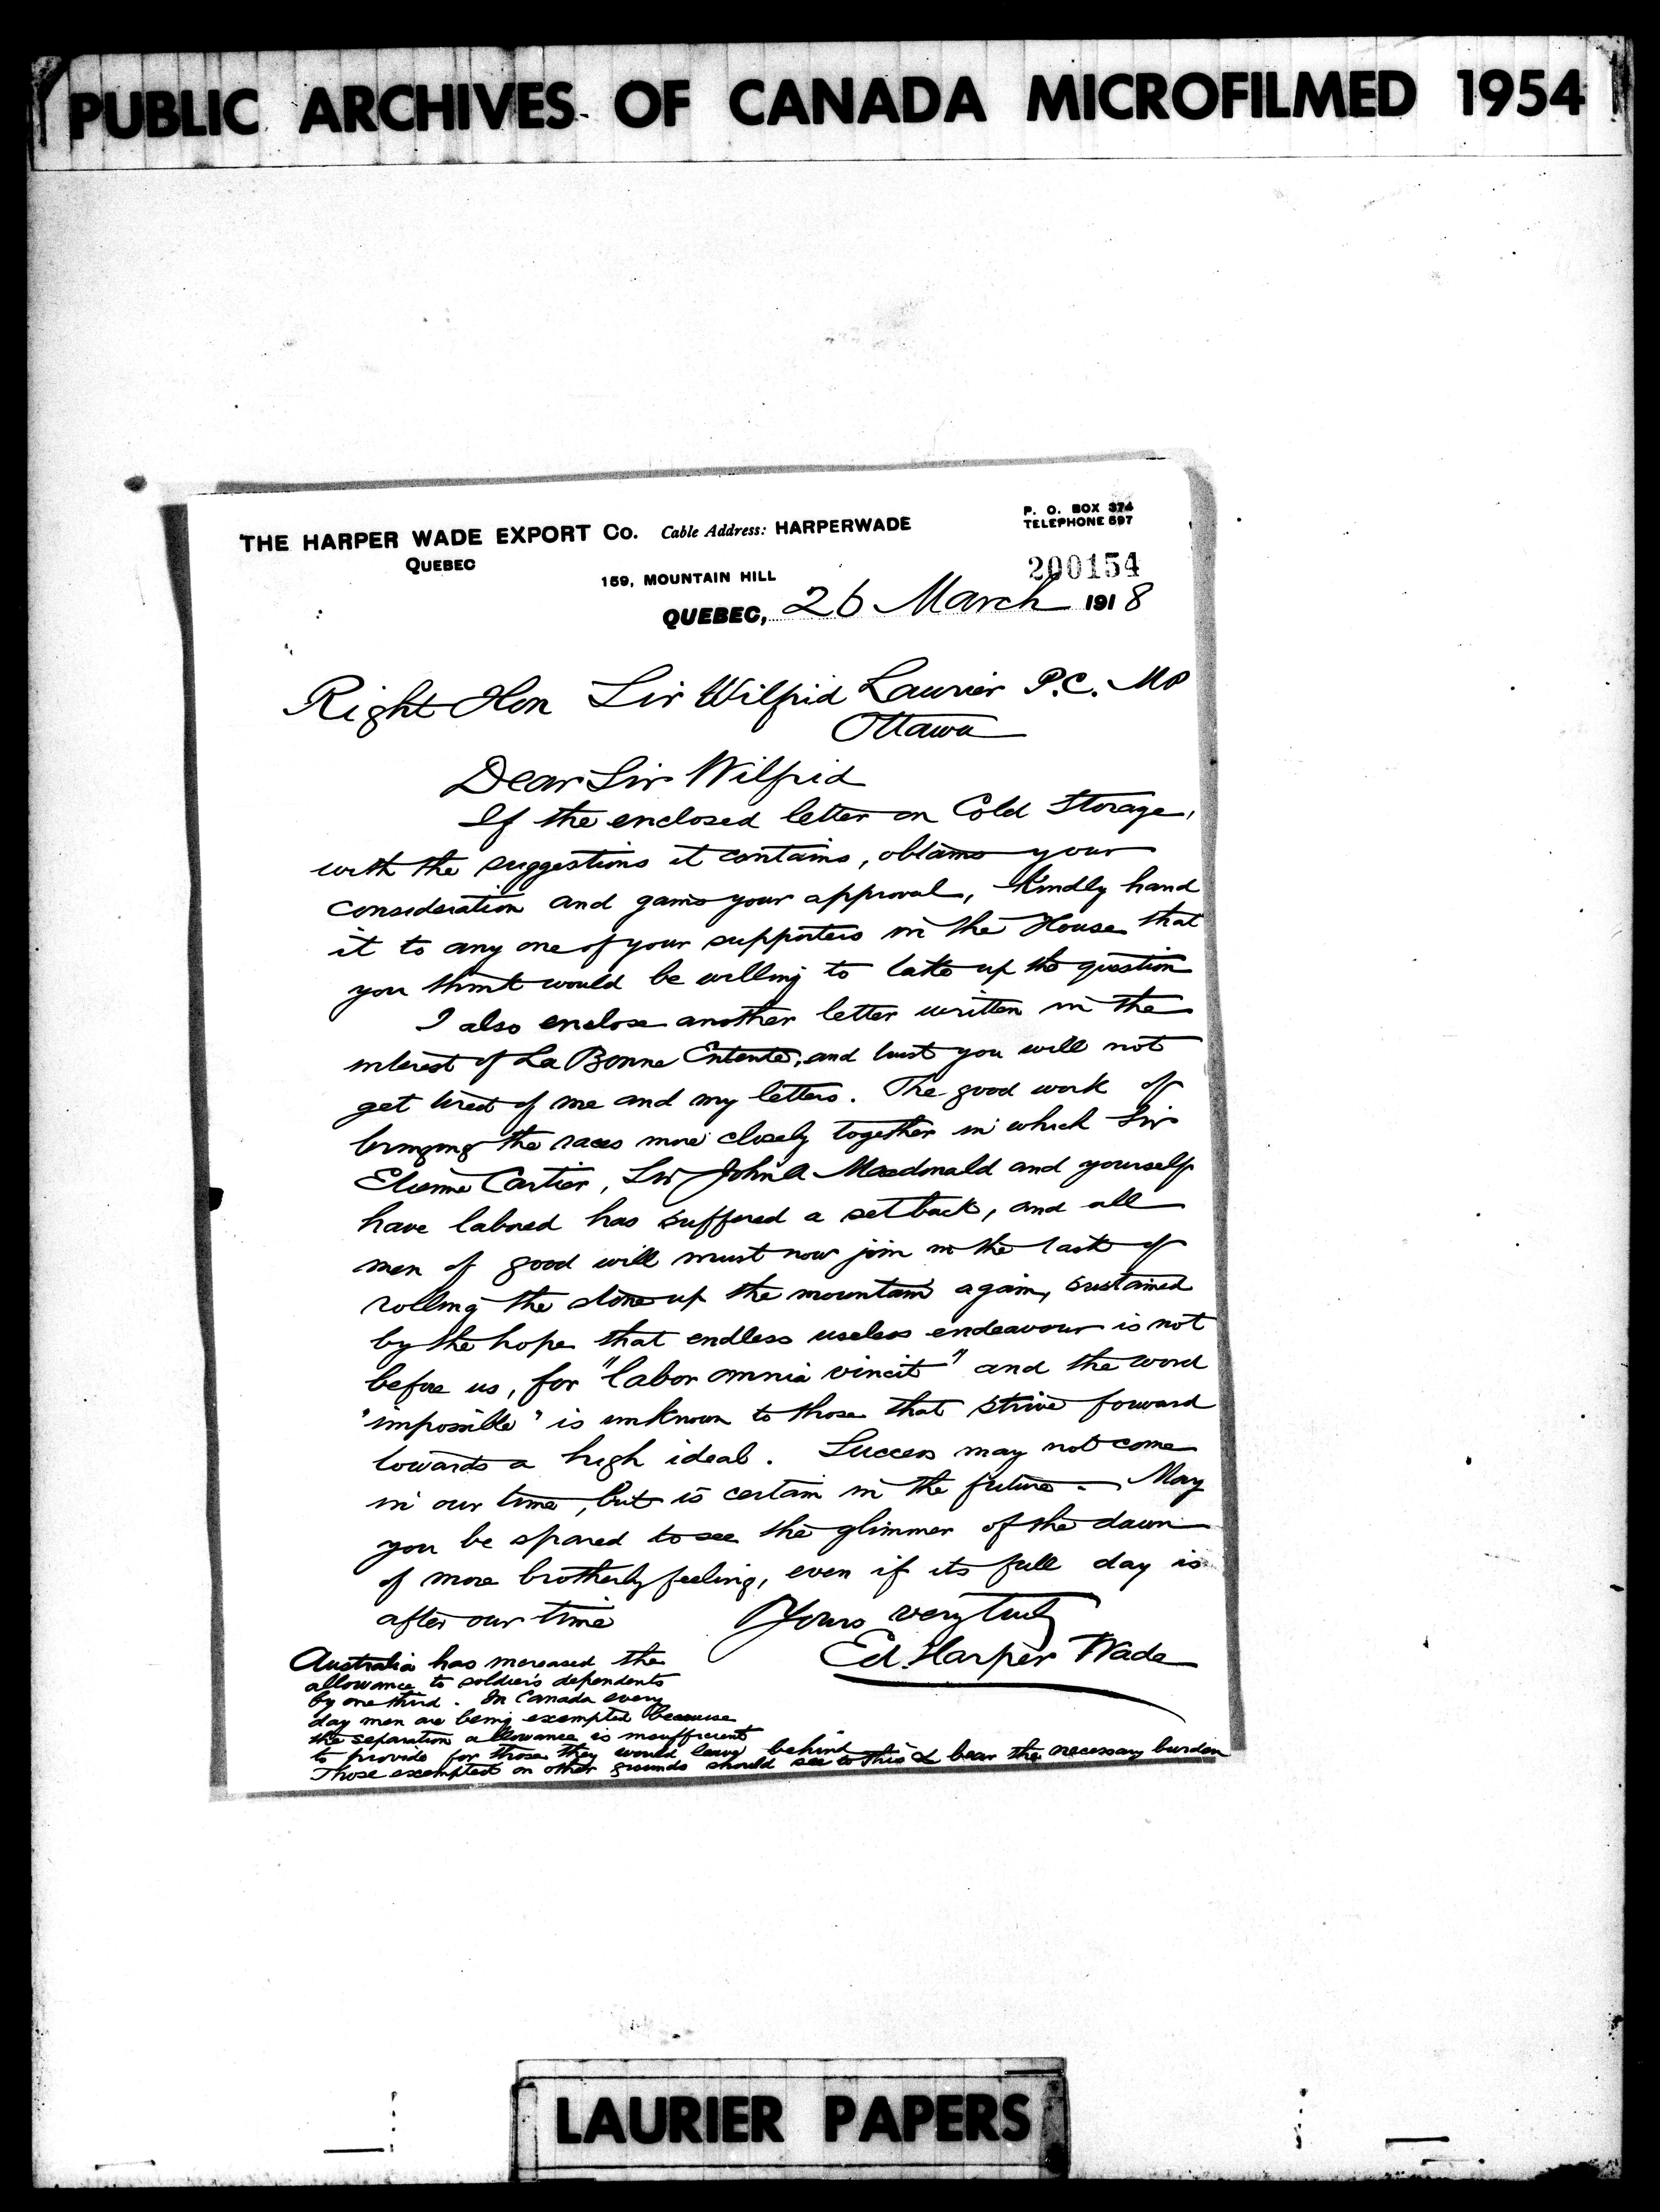 PUBLIC ARCHIVES OF CANADA MICROFILMED 1954
THE HARPER WADE EXPORT Co. Cable Address: HARPERWADE
P. O. BOX 374
TELEPHONE 597
QUEBEC
159, MOUNTAIN HILL
200154
QUEBEC, 26 March 1918
Right Hon Sir Wilfrid Laurier P.C. MP
Ottawa
Dear Sir Wilfrid
If the enclosed letter on Cold Storage,
with the suggestions it contains, obtains your
consideration and gains your approval, kindly hand
it to any one of your supporters in the House that
you think would be willing to take up the question
I also enclose another letter written in the
interest of La Bonne Entente, and trust you will not
get tired of me and my letters. The good work of
bringing the races more closely together in which Sir
Etienne Cartier, Sir John A Macdonald and yourself
have labored has suffered a set back, and all
men of good will must now join in the task of
rolling the stone up the mountain again, sustained
by the hope that endless useless endeavour is not
before us, for "labor omnia vincit" and the word
"impossible" is unknown to those that strive forward
towards a high ideal. Success may not come
in our time, but is certain in the future. May
you be spared to see the glimmer of the dawn
of more brotherly feeling, even if its full day is
after our time
Yours very truly
Ed. Harper Wade
Australia has increased the
allowance to soldiers dependents
by one third. In Canada every
day men are being exempted because
the separation allowance is insufficient
to provide for those they would leave behind
Those exempted on other grounds should see to this & bear the necessary burden
LAURIER PAPERS